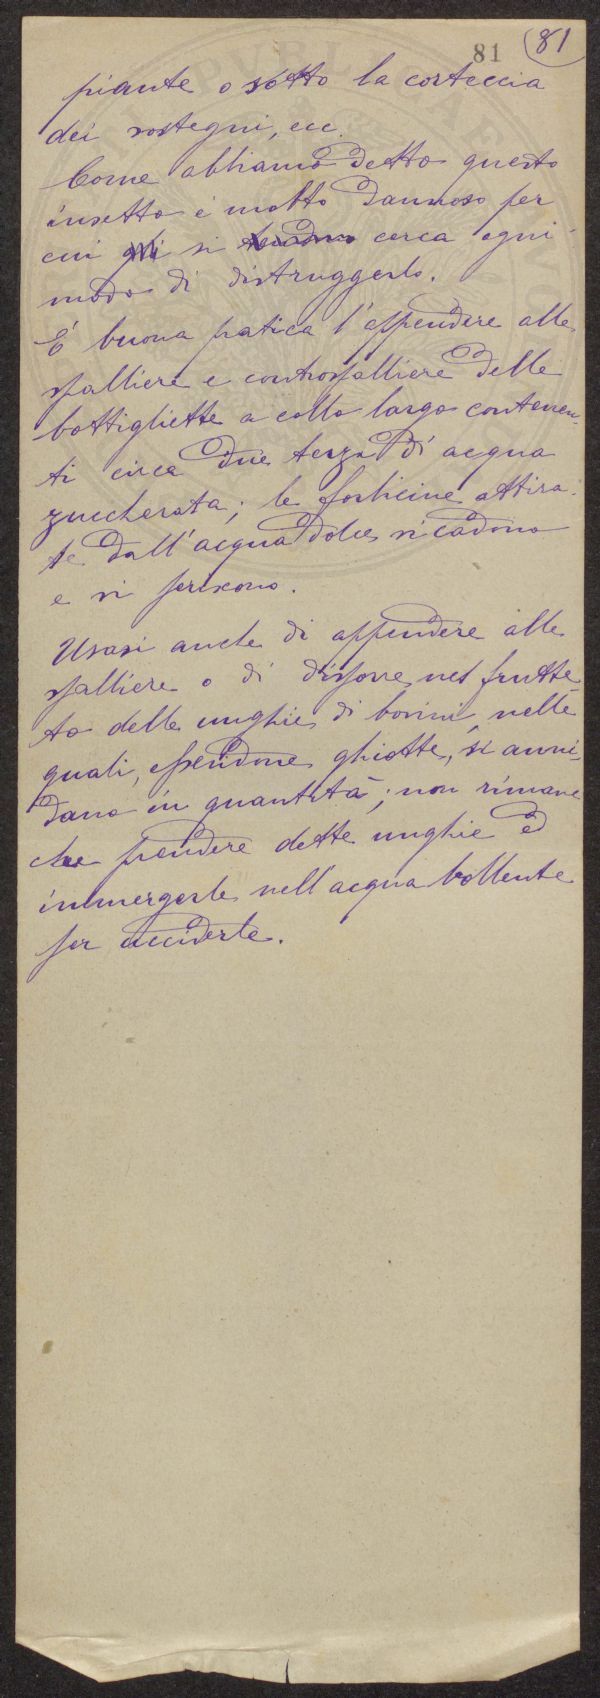 81 81
piante o sotto la corteccia
dei sostegni, ecc.
Come abbiamo detto questo
insetto è molto dannoso per
cui si cerca ogni
modo di distruggerlo.
È buona pratica l'appendere alle
spalliere e controspalliere delle
bottigliette a collo largo contenen-
ti circa due terzi di acqua
zuccherata; le forbicine attira-
te dall'acqua dolce vi cadono
e vi periscono.
Usasi anche di appendere alle
spalliere o di disporre nel frutte-
to delle unghie di bovini, nelle
quali, essendone ghiotte, si anni-
dano in quantità; non rimane
che prendere dette unghie ed
immergerle nell'acqua bollente
per ucciderle.